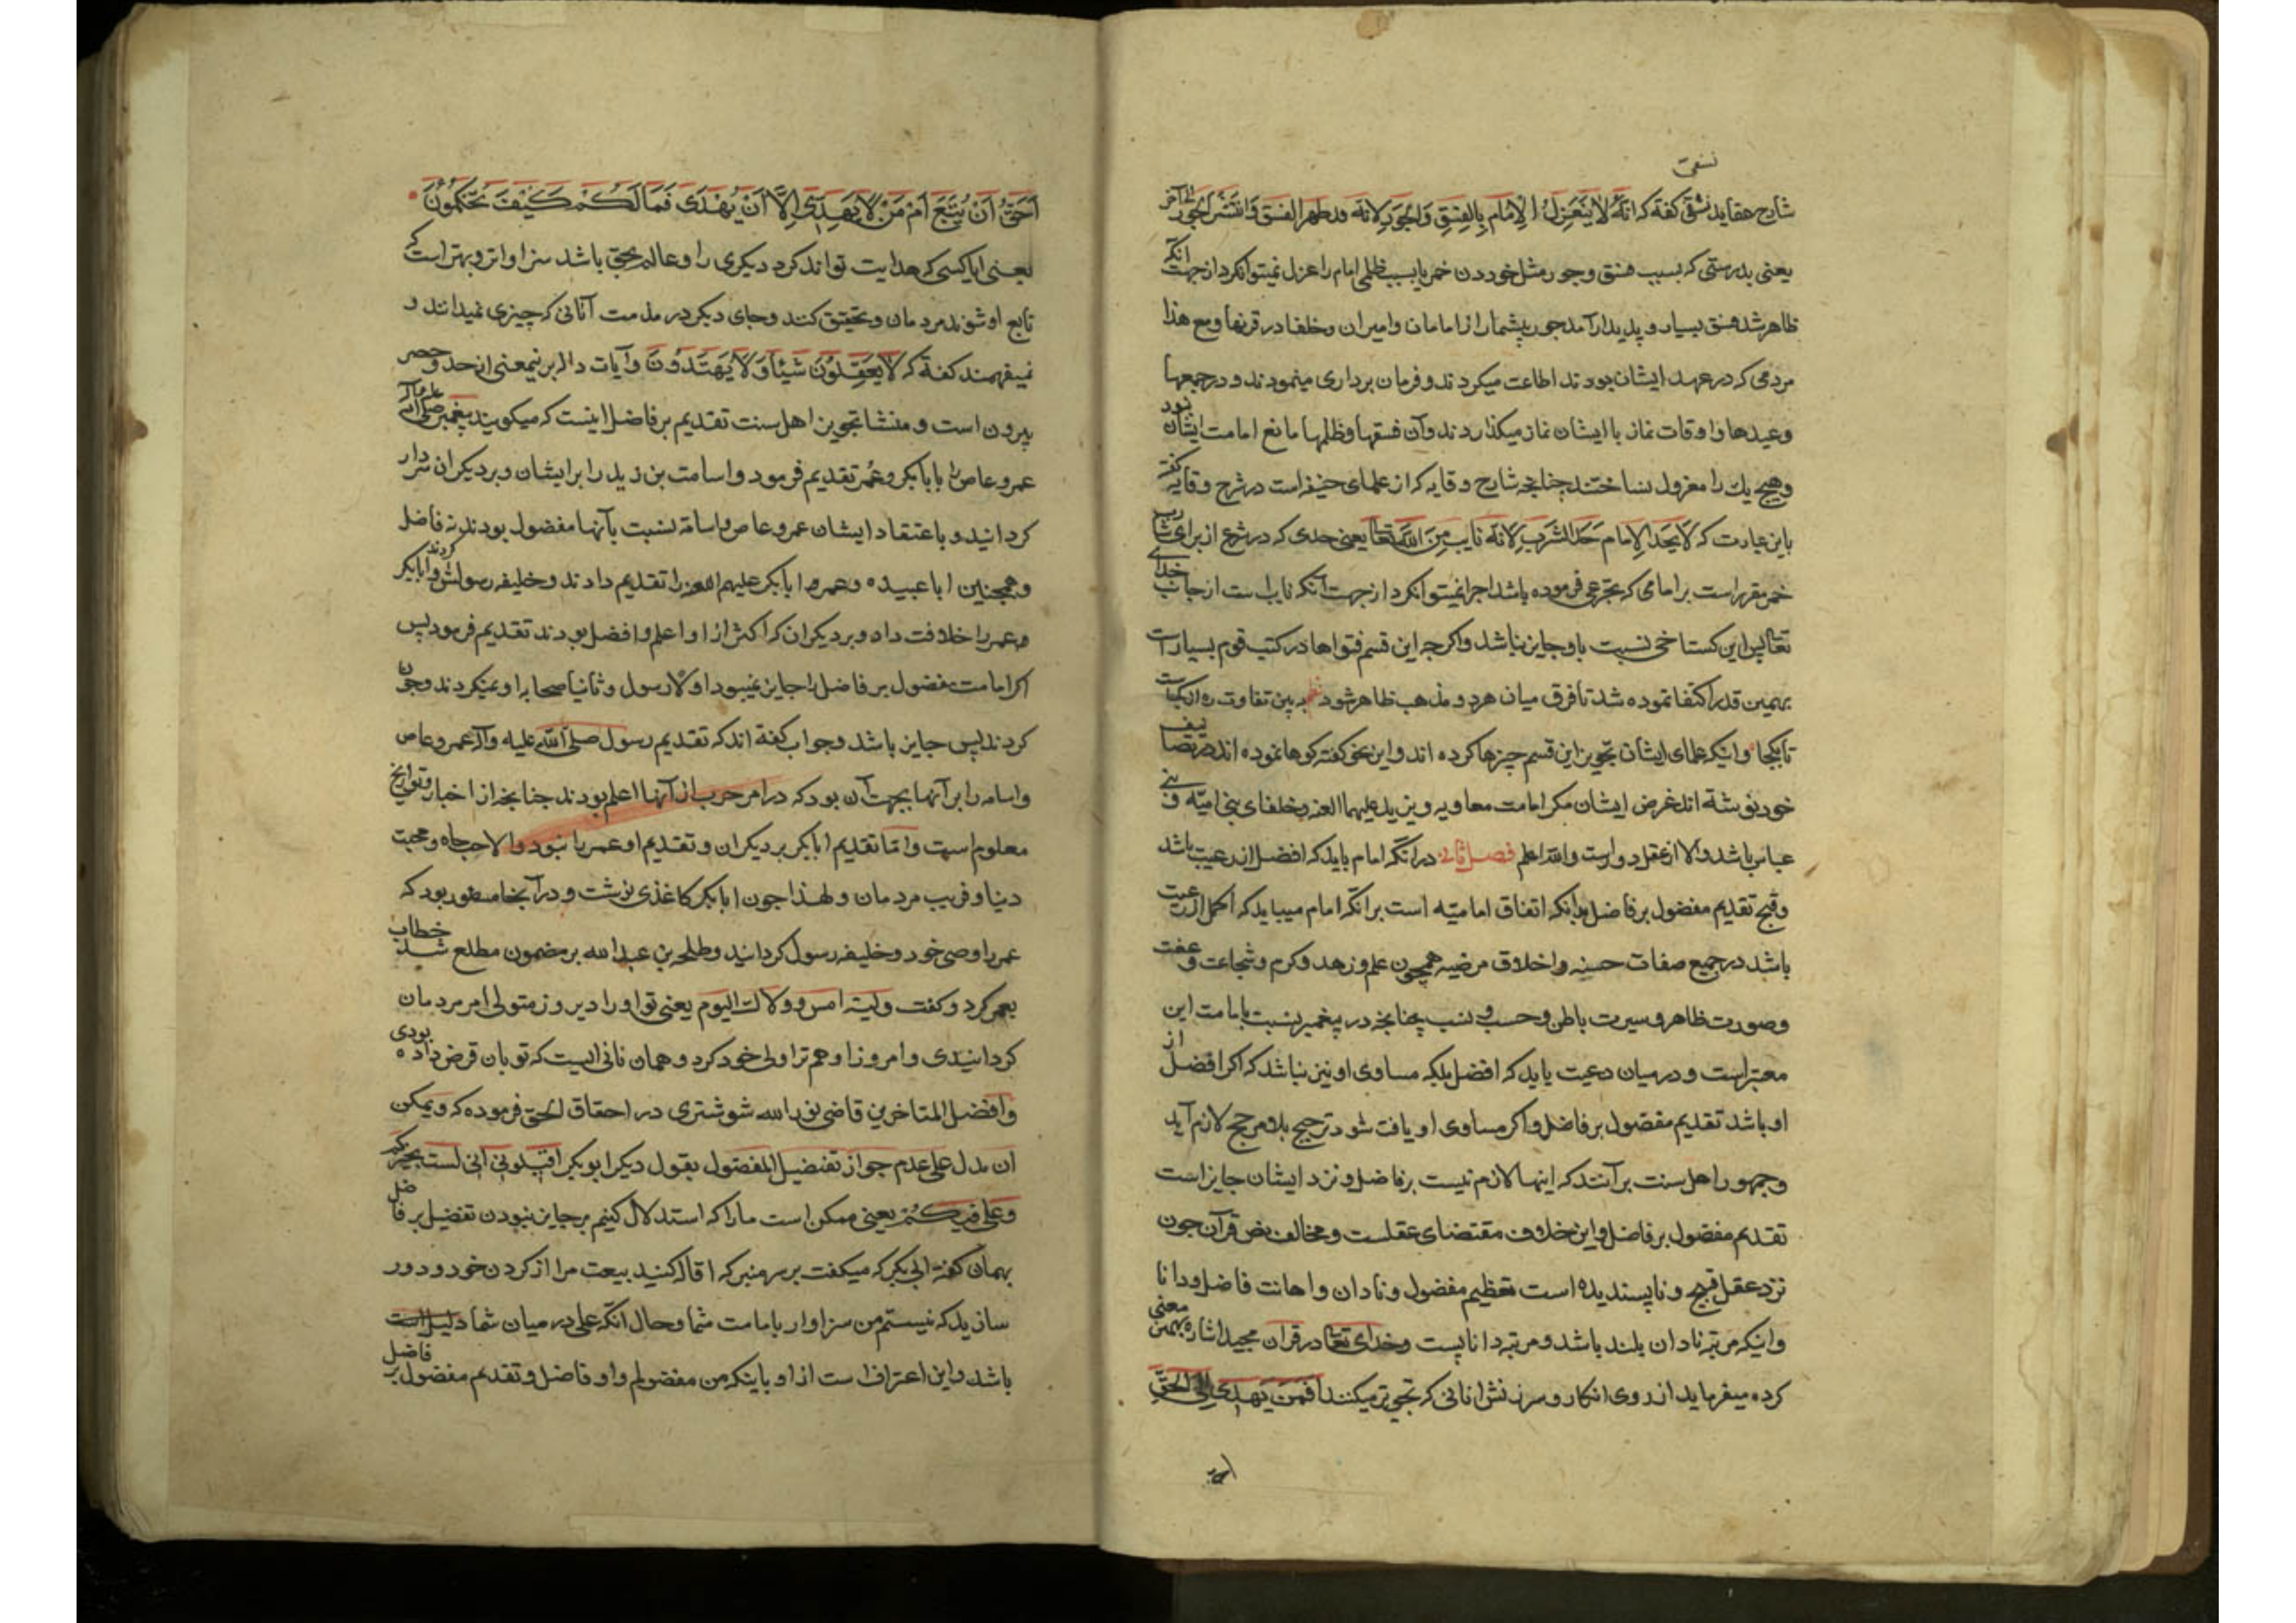 نسفی
شارح عقاید نسفی کفته که انّه لا ینعزل الامام بالفسق والجور لانه قد ظهر الفسق وانتشر الجور الخ
یعنی بدرستی که بسبب فسق وجور مثل خوردن خمر یا بسبب ظلمی امام را عزل نمیتوان کرد از جهت آنکه
ظاهر شد فسق بسیار و پدیدار آمد جور بیشمار از امامان وامیران وخلفا در قرنها ومع هذا
مردمی که در عهد ایشان بودند اطاعت میکردند وفرمان برداری مینمودند و در جمعها
وعیدها واوقات نماز با ایشان نماز میکذاردند وآن فسقها وظلمها مانع امامت ایشان نبود
وهیچ یک را معزول نساختند چنانچه شارح وقایه که از علمای حنیفه است در شرح وقایه کفته
باین عبارت که لا یحد الامام حد الشرب لانه نایب من الله تعالی یعنی حدی که در شرع از برای شارب
خمر مقرر است بر امامی که تجرعی فرموده باشد اجرا نمیتوان کرد از جهت آنکه نایب است از جانب خدای
تعالی پس این کستاخی نسبت باو جایز نباشد واکر چه این قسم فتواها در کتب قوم بسیار است
بهمین قدر اکتفا نموده شد تا فرق میان هر دو مذهب ظاهر شود به بین تفاوت ره از کجاست
تا بکجا واینکه علمای ایشان تجویز این قسم چیزها کرده اند واین نحو کفته کوها نموده اند در تصانیف
خود نوشته اند غرض ایشان مکر امامت معاویه ویزید علیهما اللعنه وخلفای بنی امیّه و بنی
عباس باشد والا از عقل دور است والله اعلم فصل ثانی در آنکه امام باید که افضل از رعیت باشد
وقبح تقدیم مفضول بر فاضل بدانکه اتفاق امامیّه است بر آنکه امام میباید که اکمل از رعیت
باشد در جمیع صفات حسنه واخلاق مرضیه همچون علم وزهد وکرم وشجاعت وعفت
وصورت ظاهر وسیرت باطن وحسب ونسب چنانچه در پیغمبر نسبت بامامت این
معتبر است و در میان رعیت باید که افضل بلکه مساوی او نیز نباشد که اکر افضل از
او باشد تقدیم مفضول بر فاضل واکر مساوی او یافت شود ترجیح بلا مرجح لازم آید
وجمهور اهل سنت برآنند که اینها لازم نیست بر فاضل ونزد ایشان جایز است
تقدیم مفضول بر فاضل واین خلاف مقتضای عقلست ومخالف نص قرآن چون
نزد عقل قبیح وناپسندیده است تعظیم مفضول ونادان واهانت فاضل ودانا
واینکه مرتبه نادان بلند باشد ومرتبه دانا پست وخدای تعالی در قران مجید اشاره بهمین معنی
کرده میفرماید از روی انکار وسرزنش انانی که تجویز میکنند افمن یهدی الی الحق
احق
احق ان یتبع ام من لا یهدی الا ان یهدی فما لکم کیف تحکمون
یعنی ایا کسی که هدایت تواند کرد دیکری را وعالم بحق باشد سزاوارتر وبهتر است که
تابع او شوند مردمان وتحقیق کنند وجای دیکر در مذمت آنانی که چیزی نمیدانند و
نمیفهمند کفته که لا یعقلون شیئا ولا یهتدون وآیات دال بر نیمعنی از حد وحصر
بیرون است ومنشا تجویز اهل سنت تقدیم بر فاضل اینست که میکویند پیغمبر صلی الله علیه وآله
عمرو عاص را بابابکر وعمر تقدیم فرمود واسامت بن زید را بر ایشان وبر دیکران سردار
کردانید وباعتقاد ایشان عمرو عاص واسامة نسبت بآنها مفضول بودند نه فاضل
وهمچنین ابا عبیده وعمر ابابکر علیهم اللعنه را تقدیم دادند وخلیفه رسولش کردند وابابکر
وعمر را خلافت داد وبر دیکران که اکثر از او اعلم وافضل بودند تقدیم فرمود پس
اکر امامت مفضول بر فاضل را جایز نمیبود اولا رسول وثانیا صحابه او نمیکردند وچون
کردند پس جایز باشد وجواب کفته اند که تقدیم رسول صلی الله علیه وآله عمرو عاص
واسامه را بر آنها بجهت آن بود که در امر حرب از آنها اعلم بودند چنانچه از اخبار وتواریخ
معلوم است وامّا تقدیم ابابکر بر دیکران وتقدیم او عمر را نبود والا حب جاه ومحبت
دنیا وفریب مردمان ولهذا چون ابابکر کاغذی نوشت و در آنجا مسطور بود که
عمر را وصی خود وخلیفه رسول کردانید وطلحه بن عبد الله بر مضمون مطلع شد خطاب
بعمر کرد وکفت ولیته امس وولاک الیوم یعنی تو او را دیروز متولی امر مردمان
کردانیدی وامروز او هم ترا ولی خود کرد وهمان نانی است که تو بان قرض داده بودی
وافضل المتاخرین قاضی نور الله شوشتری در احقاق الحق فرموده که ویمکن
ان یدل علی عدم جواز تفضیل المفضول بقول دیکر ابو بکر اقیلونی انی لست بخیرکم
وعلی فیکم یعنی ممکن است ما را که استدلال کنیم بر جایز نبودن تفضیل بر فاضل
بهمان کفته ابی بکر که میکفت بر سر منبر که اقاله کنید بیعت مرا از کردن خود ودور
سازید که نیستم من سزاوار بامامت شما وحال انکه علی در میان شما
باشد واین اعتراف است از او باینکه من مفضولم واو فاضل وتقدیم مفضول بر فاضل